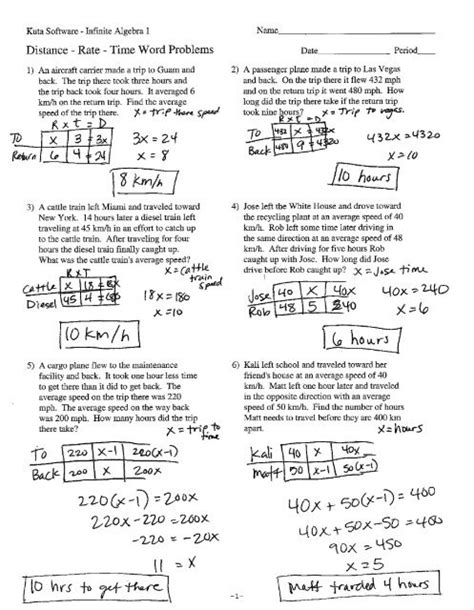 Kuta Software - Infinite Algebra 1
Name
Distance - Rate - Time Word Problems
Date Period
1) An aircraft carrier made a trip to Guam and
back. The trip there took three hours and
the trip back took four hours. It averaged 6
km/h on the return trip. Find the average
speed of the trip there. x = trip there speed
R x T = D
To x 3 = 3x
Return 6 4 = 24
3x = 24
x = 8
8 km/h
2) A passenger plane made a trip to Las Vegas
and back. On the trip there it flew 432 mph
and on the return trip it went 480 mph. How
long did the trip there take if the return trip
took nine hours? x = Trip to vegas.
R x T = D
To 432 x = 432x
Back 480 9 = 4320
432x = 4320
x = 10
10 hours
3) A cattle train left Miami and traveled toward
New York. 14 hours later a diesel train left
traveling at 45 km/h in an effort to catch up
to the cattle train. After traveling for four
hours the diesel train finally caught up.
What was the cattle train's average speed?
R x T
x = cattle
train
speed
Cattle x 18 = 18x
Diesel 45 4 = 180
18x = 180
x = 10
10 km/h
4) Jose left the White House and drove toward
the recycling plant at an average speed of 40
km/h. Rob left some time later driving in
the same direction at an average speed of 48
km/h. After driving for five hours Rob
caught up with Jose. How long did Jose
drive before Rob caught up? x = Jose time
Jose 40 x 40x
Rob 48 5 240
40x = 240
x = 6
6 hours
5) A cargo plane flew to the maintenance
facility and back. It took one hour less time
to get there than it did to get back. The
average speed on the trip there was 220
mph. The average speed on the way back
was 200 mph. How many hours did the trip
there take? x = trip to
time
To 220 x-1 220(x-1)
Back 200 x 200x
220(x-1) = 200x
220x - 220 = 200x
-220 = -20x
11 = x
10 hrs to get there
6) Kali left school and traveled toward her
friend's house at an average speed of 40
km/h. Matt left one hour later and traveled
in the opposite direction with an average
speed of 50 km/h. Find the number of hours
Matt needs to travel before they are 400 km
apart. x = hours
Kali 40 x 40x
Matt 50 x-1 50(x-1)
40x + 50(x-1) = 400
40x + 50x - 50 = 400
90x = 450
x = 5
Matt traveled 4 hours
-1-